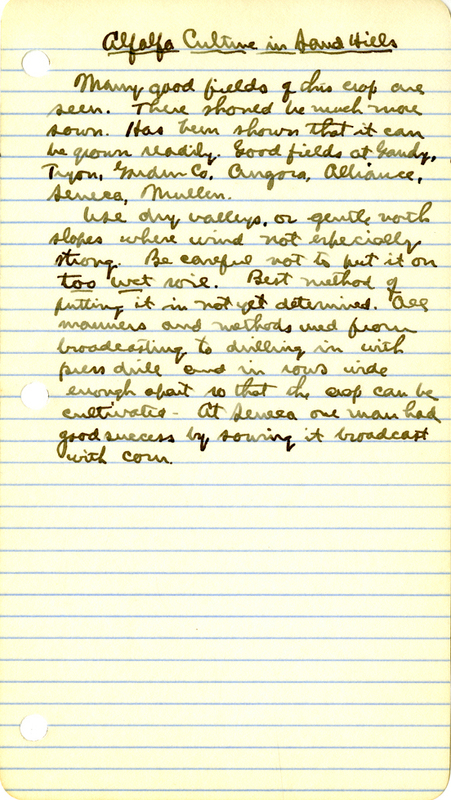 Alfalfa Culture in Sand Hills
Many good fields of this crop are
seen. There should be much more
sown. Has been shown that it can
be grown readily. Good fields at Gandy,
Tryon, Garden Co. Angora, Alliance,
Seneca, Mullen.
Use dry valleys, or gentle north
slopes where wind not especially
strong. Be careful not to put it on
too wet soil. Best method of
putting it in not yet determined. All
manners and methods used from
broadcasting to drilling in with
press drill and in rows wide
enough apart so that the crop can be
cultivated - At Seneca one man had
good success by sowing it broadcast
with corn.